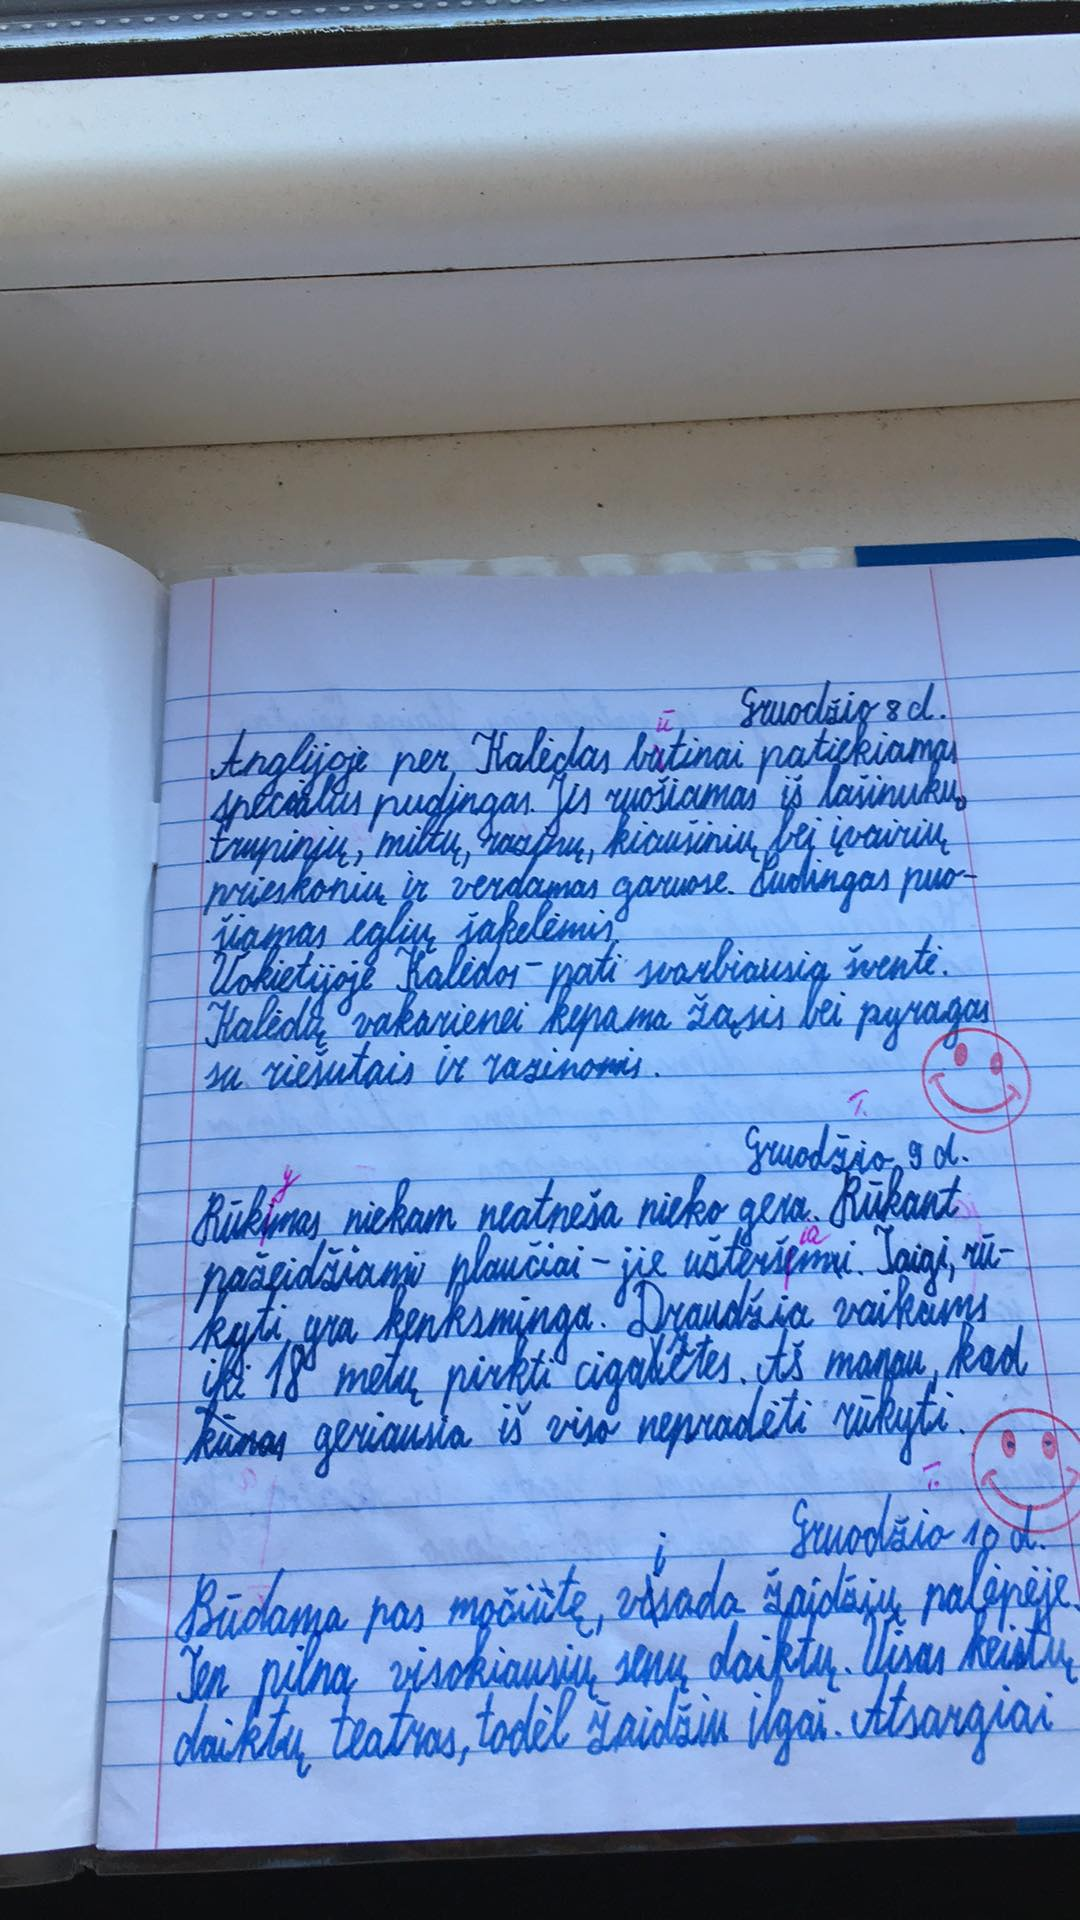 Gruodžio 8 d.
Anglijoje per Kalėdas būtinai patiekiamas
specialus pudingas. Jis ruošiamas iš lašinukų,
trupinių, miltų, razinų, kiaušinių bei įvairių
prieskonių ir verdamas garuose. Pudingas puo-
šiamas eglių šakelėmis.
Vokietijoje Kalėdos – pati svarbiausia šventė.
Kalėdų vakarienei kepama žąsis bei pyragas
su riešutais ir razinomis.
T.
Gruodžio 9 d.
Rūkymas niekam neatneša nieko gera. Rūkant
pažeidžiami plaučiai – jie užteršiami. Taigi, rū-
kyti yra kenksminga. Draudžia vaikams
iki 18 metų pirkti cigaretes. Aš manau, kad
geriausia iš viso nepradėti rūkyti.
T.
Gruodžio 10 d.
Būdama pas močiutę, visada žaidžių palėpėje.
Ten pilna visokiausių senų daiktų. Visas keistų
daiktų teatras, todėl žaidžiu ilgai. Atsargiai